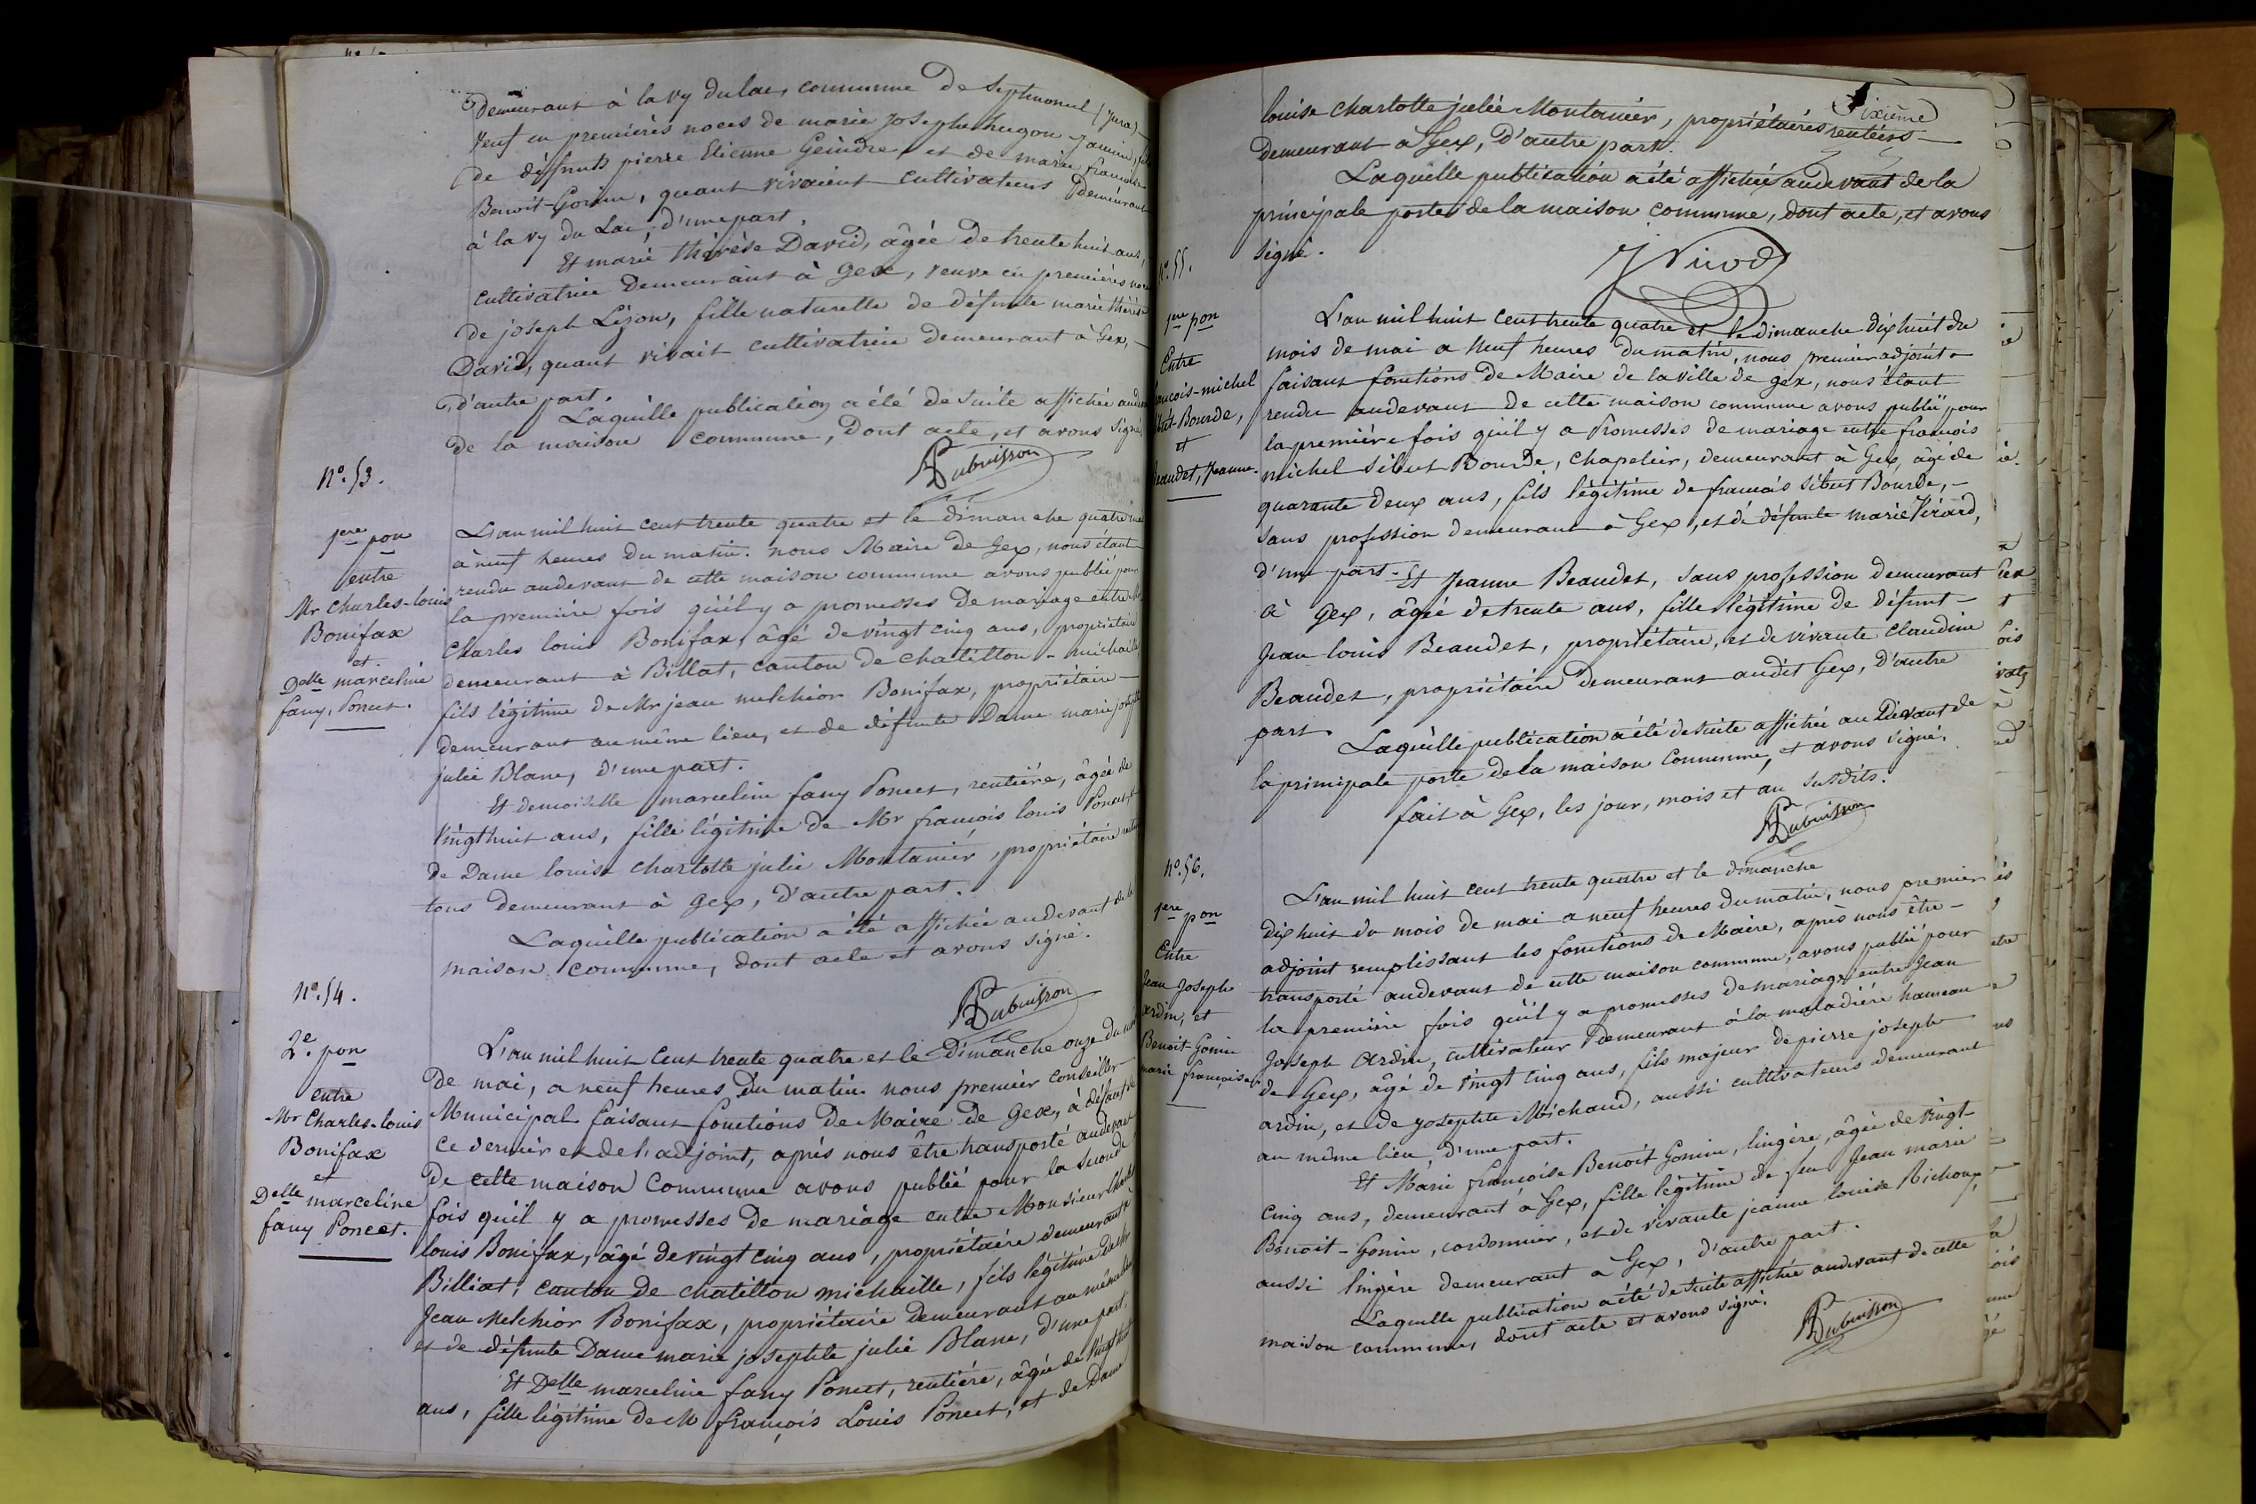 demeurant à la vy du lac, commune de Septmoncel (Jura)
Veuf en premières noces de marie Josephe hugon
de défunts pierre Etienne Geindre, et de marie françoise
Benoit-Gonin, quant vivaient cultivateurs demeurant
à la vy du Lac, d'une part.
Et marie thérèse David, âgée de trente huit ans,
cultivatrice demeurant à Gex, veuve en premières noces
de joseph Lizon, fille naturelle de défunte marie thérèse
David, quant vivait cultivatrice demeurant à Gex,
d'autre part.
Laquelle publication a été de suite affichée
de la maison commune, dont acte, et avons signé
Dubuisson
N°. 53.
1ere pon
entre
Mr Charles-louis
Bonifax
et
Delle marceline
fany, Poncet.
L'an mil huit cent trente quatre et le dimanche quatre mai
à neuf heures du matin. nous Maire de Gex, nous étant
rendu audevant de cette maison commune avons publié pour
la première fois qu'il y a promesses de mariage entre Mr
Charles louis Bonifax, âgé de vingt cinq ans, propriétaire
demeurant à Billat, canton de chatillon-michaille,
fils légitime de Mr jean melchior Bonifax, propriétaire
demeurant au même lieu, et de défunte Dame marie josephte
julie Blanc, d'une part.
Et demoiselle marceline fany Poncet, rentière, âgée de
vingt huit ans, fille légitime de Mr françois louis Poncet, et
de Dame louise charlotte julie Montanier, propriétaire
tous demeurant à Gex, d'autre part.
Laquelle publication a été affichée audevant de la
maison commune, dont acte et avons signé.
Dubuisson
N°. 54.
2e. pon
entre
Mr Charles-louis
Bonifax
et
Delle marceline
fany Poncet.
L'an mil huit cent trente quatre et le dimanche onze du mois
de mai, a neuf heures du matin nous premier conseiller
Municipal faisant fonctions de Maire de Gex, à défaut de
ce dernier et de l'adjoint, après nous être transporté audevant
de cette maison commune avons publié pour la seconde
fois qu'il y a promesses de mariage entre Monsieur Charles
louis Bonifax, âgé de vingt cinq ans, propriétaire demeurant à
Billiat, canton de chatillon michaille, fils légitime de Mr
Jean Melchior Bonifax, propriétaire demeurant au même lieu
et de défunte Dame marie josephte julie Blanc, d'une part.
Et Delle marceline fany Poncet, rentière, âgée de vingt huit
ans, fille légitime de M françois Louis Poncet, et de Dame
Sixième
louise charlotte julie Montanier, propriétaires rentiers
demeurant à Gex, d'autre part.
Laquelle publication a été affichée audevant de la
principale porte de la maison commune, dont acte, et avons
signé.
J Nicod
N°. 55.
1ere pon
Entre
françois-michel
Sibut-Bourde,
et
Beaudet, Jeanne.
L'an mil huit cent trente quatre et le dimanche dix huit du
mois de mai a neuf heures du matin, nous premier adjoint
faisant fonctions de Maire de la ville de gex, nous étant
rendu audevant de cette maison commune avons publié pour
la première fois qu'il y a promesses de mariage entre françois
michel Sibut Bourde, chapelier, demeurant à Gex, âgé de
quarante deux ans, fils légitime de françois Sibut Bourde,
sans profession demeurant à Gex, et de défunte marie Girard,
d'une part. Et Jeanne Beaudet, sans profession demeurant
à Gex, âgée de trente ans, fille légitime de défunt
Jean louis Beaudet, propriétaire, et de vivante Claudine
Beaudet, propriétaire demeurant audit Gex, d'autre
part.
Laquelle publication a été de suite affichée au Devant de
la principale porte de la maison Commune, et avons signé.
fait à Gex, les jour, mois et an susdits.
Dubuisson
N°. 56.
1ere pon
Entre
Jean Joseph
ardin, et
Benoit Gonin
marie françoise
L'an mil huit cent trente quatre et le dimanche
dix huit du mois de mai a neuf heures du matin, nous premier
adjoint remplissant les fonctions de Maire, après nous être
transporté audevant de cette maison commune, avons publié pour
la première fois qu'il y a promesses de mariage entre Jean
Joseph Ardin, cultivateur demeurant à la maladière hameau
de Gex, âgé de vingt cinq ans, fils majeur de pierre joseph
ardin, et de josephte Michaud, aussi cultivateurs demeurant
au même lieu, d'une part.
Et Marie françoise Benoit Gonin, lingère, âgée de vingt
cinq ans, demeurant à Gex, fille légitime de feu Jean marie
Benoit-Gonin, cordonnier, et de vivante jeanne louise Richoux,
aussi lingère demeurant à Gex, d'autre part.
Laquelle publication a été de suite affichée audevant de cette
maison commune, dont acte et avons signé.
Dubuisson